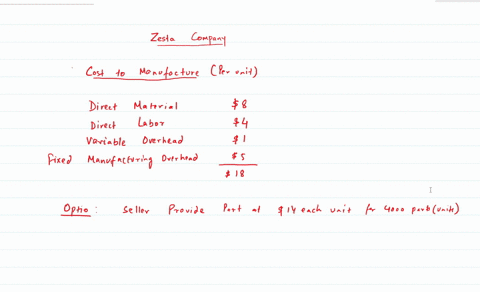 Zesta Company
Cost to Manufacture (Per unit)
Direct Material $8
Direct Labor $4
Variable Overhead $1
Fixed Manufacturing Overhead $5
$18
Optio : Seller Provide Part at $14 each unit for 4000 part (units)